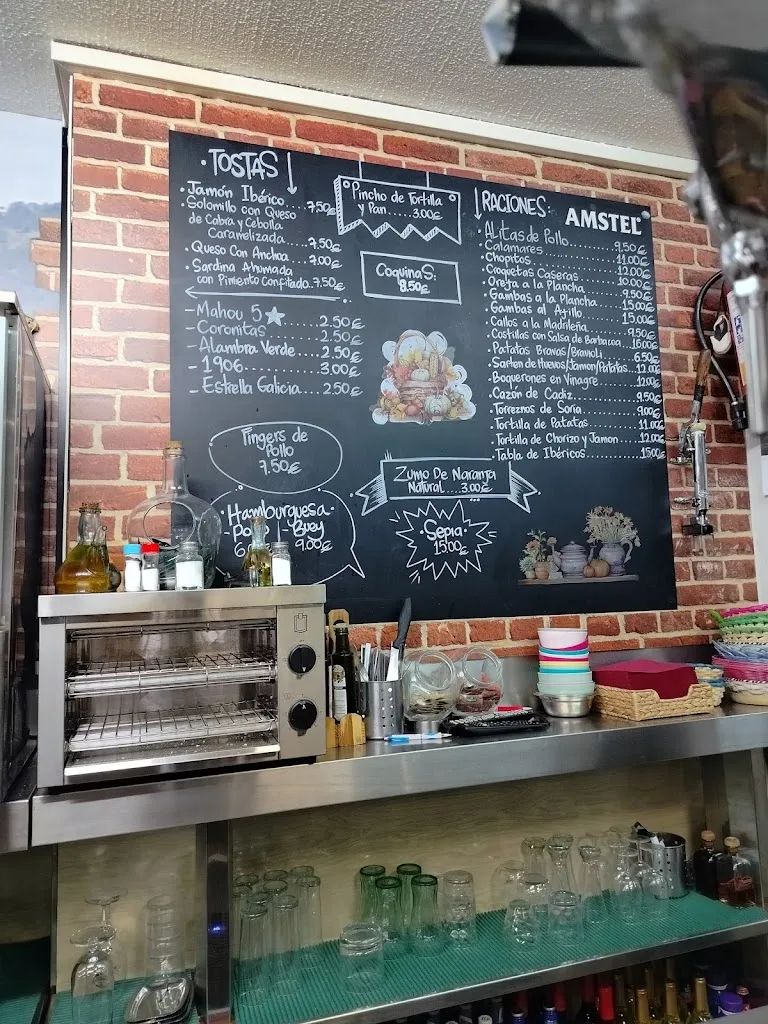 ·TOSTAS
·Jamón Ibérico...7,50€
·Solomillo con Queso
de Cabra y Cebolla
Caramelizada
...7,50€
·Queso Con Anchoa...7,00€
·Sardina Ahumada
con Pimiento Confitado..7,50€
-Mahou 5☆...2.50€
-Coronitas...2.50€
-Alambra Verde...2.50€
-1906...3.00€
-Estrella Galicia...2.50€
Fingers de
Pollo
7.50€
·Hamburguesa-
-Buey
9.00€
Pincho de Tortilla
y Pan.....3.00€
CoquinaS:
8.50€
Zumo De Naranja
Natural....3.00€
·Sepia·
15.00€
RACIONES:
AMSTEL
·ALitas de Pollo...9,50€
·Calamares...11.00€
·Chopitos...12.00€
·Croquetas Caseras...10.00€
·Oreja a la Plancha...9.50€
·Gambas a la Plancha...15.00€
·Gambas al Ajillo...15.00€
·Callos a la Madrileña...9.50€
·Costillas con Salsa de Barbacoa..16.00€
·Patatas Bravas/Bravioli...6.50€
·Sarten de Huevos/Jamon/Patatas..12.00€
·Boquerones en Vinagre...12.00€
·Cazón de Cadiz...9.50€
·Torreznos de Soria...9.00€
·Tortilla de Patatas...11.00€
·Tortilla de Chorizo y Jamon...12.00€
·Tabla de Ibéricos...15.00€